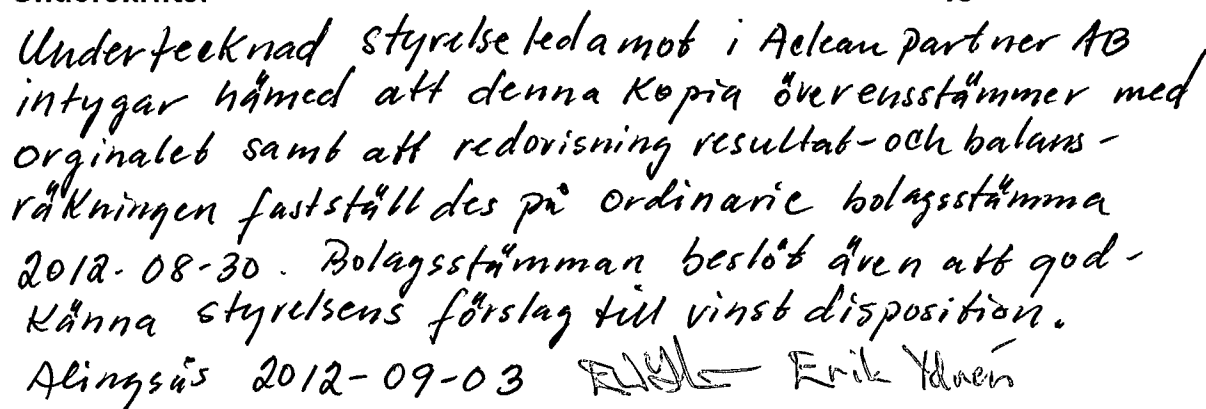 Undertecknad styrelseledamot i Aclean Partner AB
intygar hämed att denna Kopia överensstämmer med
orginalet samt att redovisning resultat-och balans-
räkningen fastställdes på ordinarie bolagsstämma
2012-08-30. Bolagsstämman beslöt även att god-
känna styrelsens förslag till vinst disposition.
Alingsås 2012-09-03 Erik